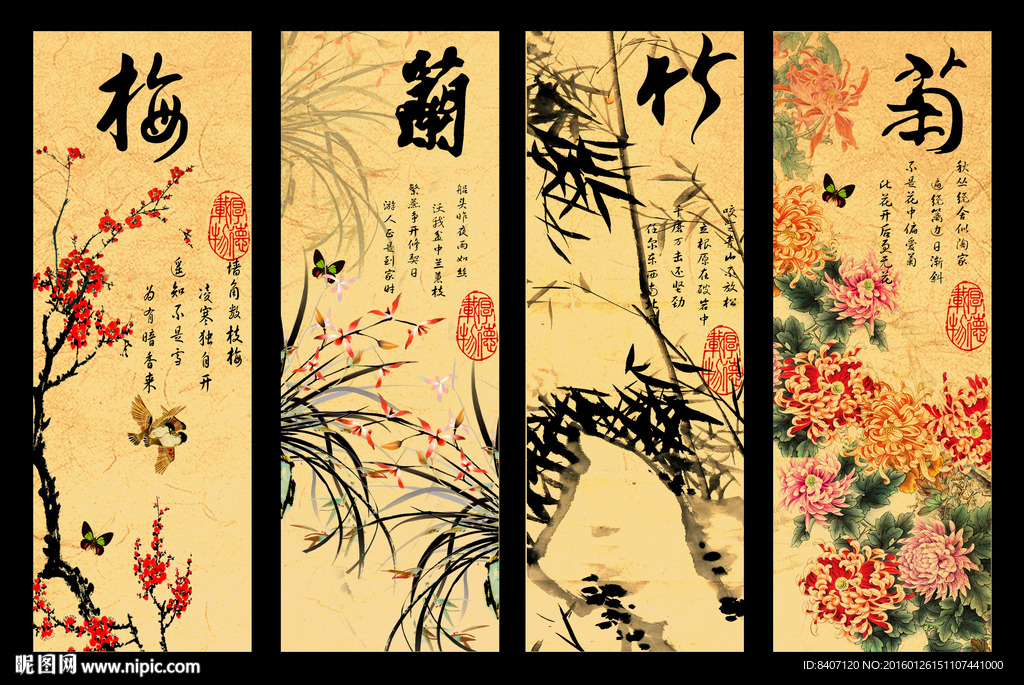 梅
墙角数枝梅
凌寒独自开
遥知不是雪
为有暗香来
厚德載物
蘭
船头昨夜雨如丝
沃我盆中兰蕙枝
繁蕊争开修契日
游人正是到家时
厚德載物
竹
咬定青山不放松
立根原在破岩中
千磨万击还坚劲
任尔东西南北
厚德載物
菊
秋丛绕舍似陶家
遍绕篱边日渐斜
不是花中偏爱菊
此花开后更无花
厚德載物
昵图网 www.nipic.com
ID:8407120 NO:20160126151107441000